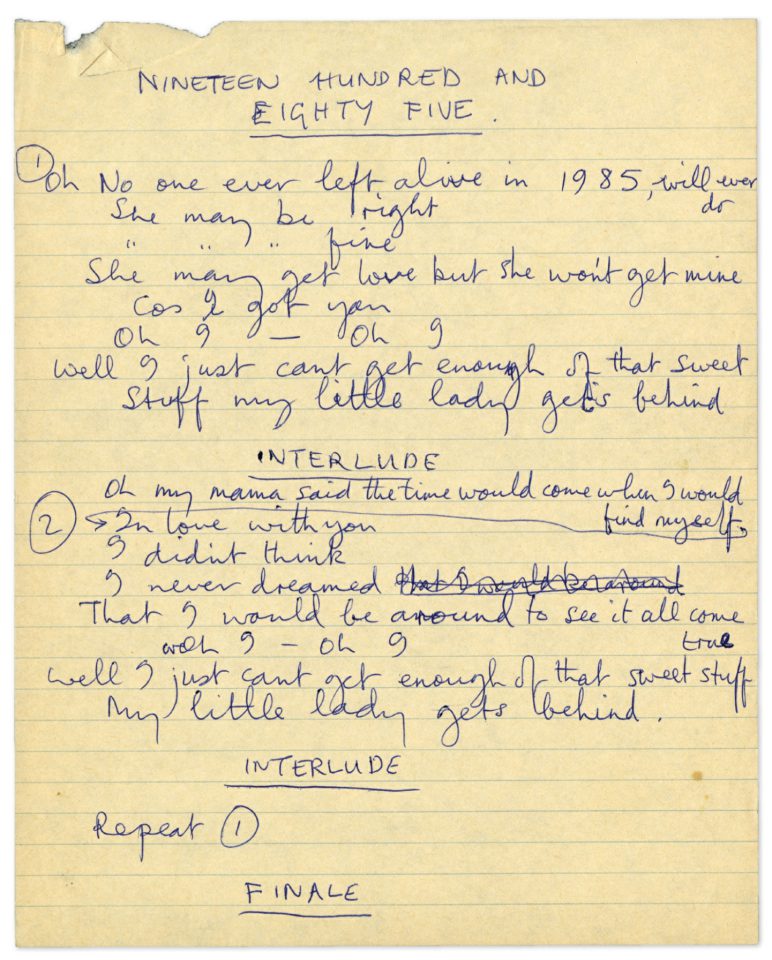 NINETEEN HUNDRED AND
EIGHTY FIVE.
① Oh No one ever left alive in 1985, will ever
do
She may be right
" " " fine
She may get love but she won't get mine
Cos I got you
Oh I — Oh I
Well I just cant get enough of that sweet
Stuff my little lady gets behind
INTERLUDE
Oh my mama said the time would come when I would
find myself,
② → In love with you
I didn't think
I never dreamed that I would be around
That I would be around to see it all come
true
woh I - Oh I
Well I just cant get enough of that sweet stuff
My little lady gets behind.
INTERLUDE
Repeat ①
FINALE